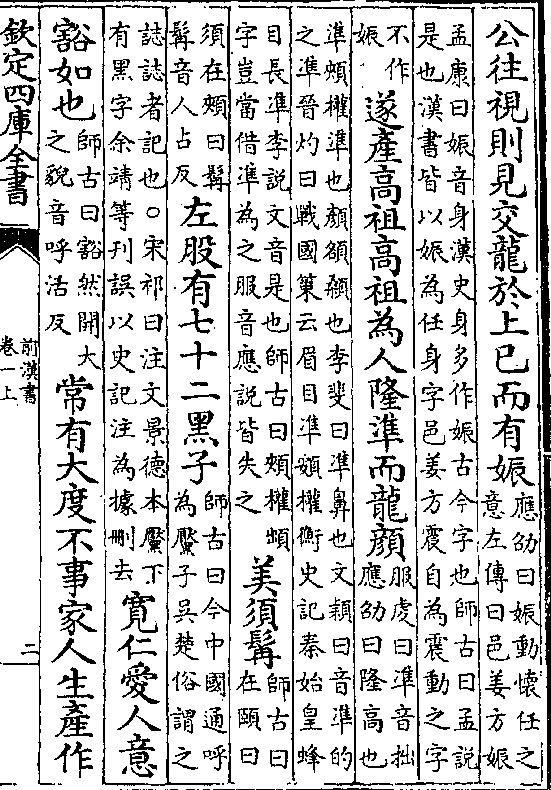 公往視則見交龍於上已而有娠應劭曰娠動懷任之
意左傳曰邑姜方娠
孟康曰娠音身漢史身多作娠古今字也師古曰孟說
是也漢書皆以娠為任身字邑姜方震自為震動之字
不作
娠
遂產高祖高祖為人隆準而龍顔服虔曰準音拙
應劭曰隆高也
準頰權準也顔額顙也李斐曰準鼻也文穎曰音準的
之準晉灼曰戰國策云眉目準頞權衡史記秦始皇蜂
目長準李說文音是也師古曰頰權䪼
字豈當借準為之服音應說皆失之
美須髯師古曰
在頤曰
須在頰曰髯
髯音人占反
左股有七十二黑子師古曰今中國通呼
為黶子吳楚俗謂之
誌誌者記也○宋祁曰注文景德本黶下
有黑字余靖等刊誤以史記注為據刪去
寛仁愛人意
豁如也師古曰豁然開大
之貌音呼活反
常有大度不事家人生產作
欽定四庫全書
前漢書
卷一上
二